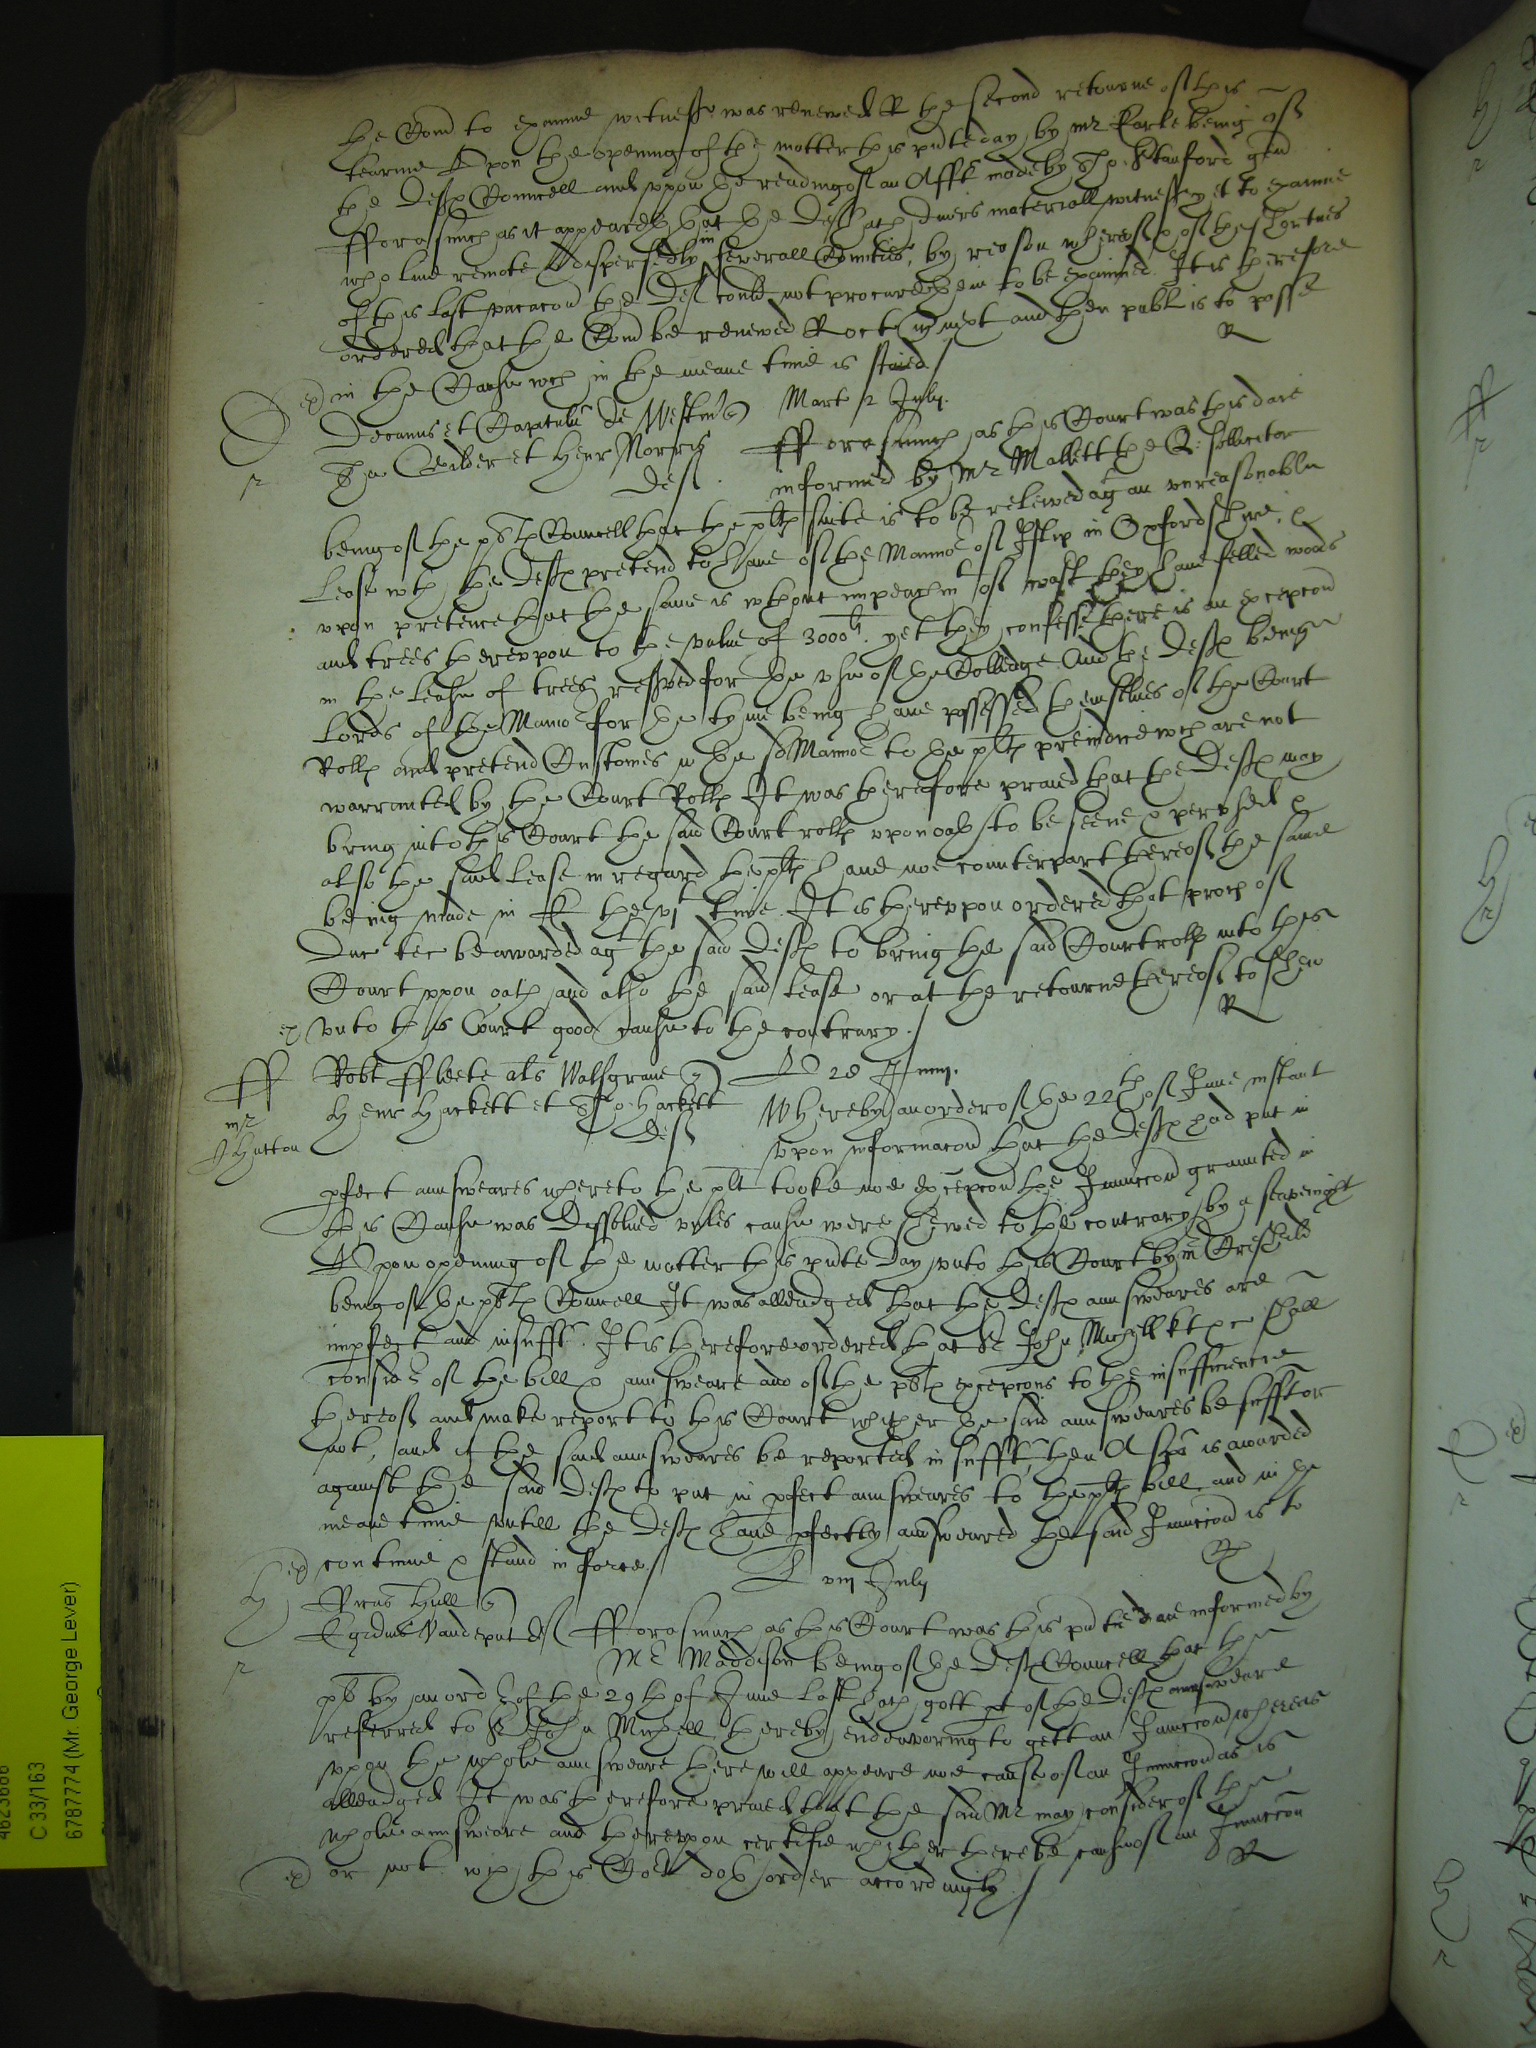 the Com̃ to examine witnesses was renewed R the second retourne of this
tearme Upon the opening of the matter this pn̄te day by mr Earle being of
the Defts Councell and vppon the readinge of an Afft made by Tho: Stanford gen̄
fforasmuch as it appeareth that the Deft hath divers materiall witnesses yet to examine
who live remote & dispersedly in severall Counties, by reason whereof & of the shortnes
of this last vacacon the Deft could not procure them to be examined. It is therefore
ordered that the Com̃ be renewed R Oct mꝭ next and then publ is to passe
ex in the Cause wch in the meane time is staied /
R
D
r
Decanus et Capitulũ de Westm̃ Mart 2 July.
Tho Gilder et Henr Norris
Deft
fforasmuch as this Court was this daie
informed by Mr Mallett the Q: sollicitor
being of the plts Councell that the plts suite is to be releived agt an vnreasonable
Lease wch the Defts pretend to have of the Mannor of Islip in Oxfordshire, &
vpon pretence that the same is wthout impeachmt of wast they have felled woods
and trees therevpon to the value of 3000li. yet they confesse there is an excepcon
in the lease of trees reserved for the vse of the Colledge And the Defts being
Lords of the Mannor for the tyme being have possessed themselves of the Court
Rolls and pretend Customes in the sd Mannor to the plts preiudice wch are not
warranted by the Court Rolls It was therefore praied that the Defts may
bring into this Court the said Court rolls vpon oath to be seene & perused &
also the said Lease in regard the plts have noe counterpart thereof the same
being made in E the vjt time. It is therevpon ordered that proces of
Duc tec be awarded agt the said Defts to bring the said Court rolls into this
Court vppon oath and also the said Lease or at the retourne thereof to shew
ex vnto this Court good cause to the contrary. /
R
ff
mr
J Hutton
Robt ffleete als Walsgrave
Henr Hackett et Tho: Hackett
Deft
D 28 Junij.
Whereby an order of the 22th of June instant
vpon informacon that the Defts had put in
pfect aunsweares whereto the plt tooke noe excepcon the Iniunccon graunted in
this Cause was dissolved vnles cause were shewed to the contrary by a seavenight
Upon opening of the matter this pn̄te day vnto this Court by mr Crefeild
being of the plts Councell It was alleadged that the Defts aunsweares are
impfect and insufft. It is therefore ordered that Sr John Michell kt &c shall
consider of the bill & aunsweare and of the plts excepcons to the insufficiencie
thereof and make report to this Court whither the said aunsweares be sufft or
not, and if the said aunsweares be reported insufft, then A spa is awarded
against the said Defts to put in pfect aunsweares to the plts bill and in the
meane time vntill the Defts have pfectly aunsweared the said Iniunccon is to
ex continue & stand in force. /
R
H
r
ffras Hull
Egidius Vandeput Deft
D viij July
fforasmuch as this Court was this pn̄te daie informed by
Mr Maddison being of the Defts Councell that the
plt by an order of the 29th of June last hath gott pt of the Defts aunsweare
referred to Sr John Michell thereby endeavoring to gett an Iniunccon whereas
vpon the whole aunsweare there will appeare noe cause of an Iniunccon as is
alleadged It was therefore praied that the said Mr may consider of the
whole aunsweare and therevpon certifie whither there be cause of an Iniunccon
ex or not wch this Cort doth order accordingly. /
R
C 33/163
6787774 (Mr. George Lever)